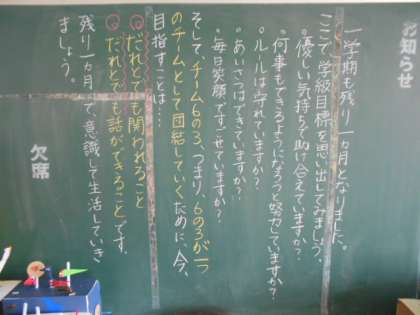 お知らせ
一学期も残り一ヵ月となりました。
ここで、学級目標を思い出してみましょう。
・優しい気持ちで助け合えていますか?
・何事もできるようになろうと努力していますか?
・ルールは守れていますか?
・あいさつはできていますか?
・毎日笑顔ですごせていますか?
そして、チーム6の3、つまり、6の3が一つ
のチームとして団結していくために、今、
目指すことは…
◎だれとでも関われること
◎だれとでも話ができることです。
残り一ヵ月、で、意識して生活していき
ましょう。
欠席